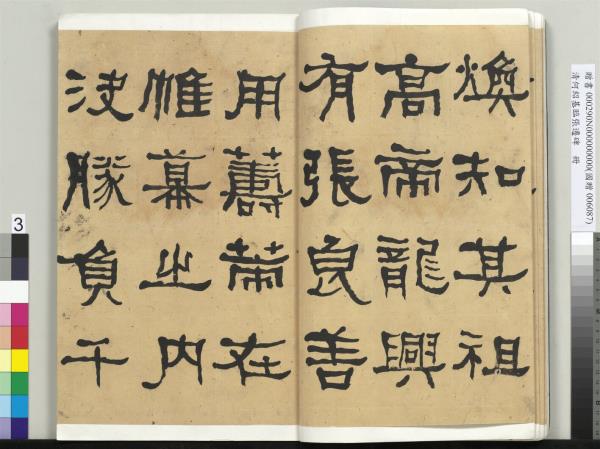 煥知其祖
高帝龍興
有張良善
用籌策在
帷幕之内
決勝負千
贈書 000290N000000000(國贈 006087)
清何紹基臨張遷碑 冊
3